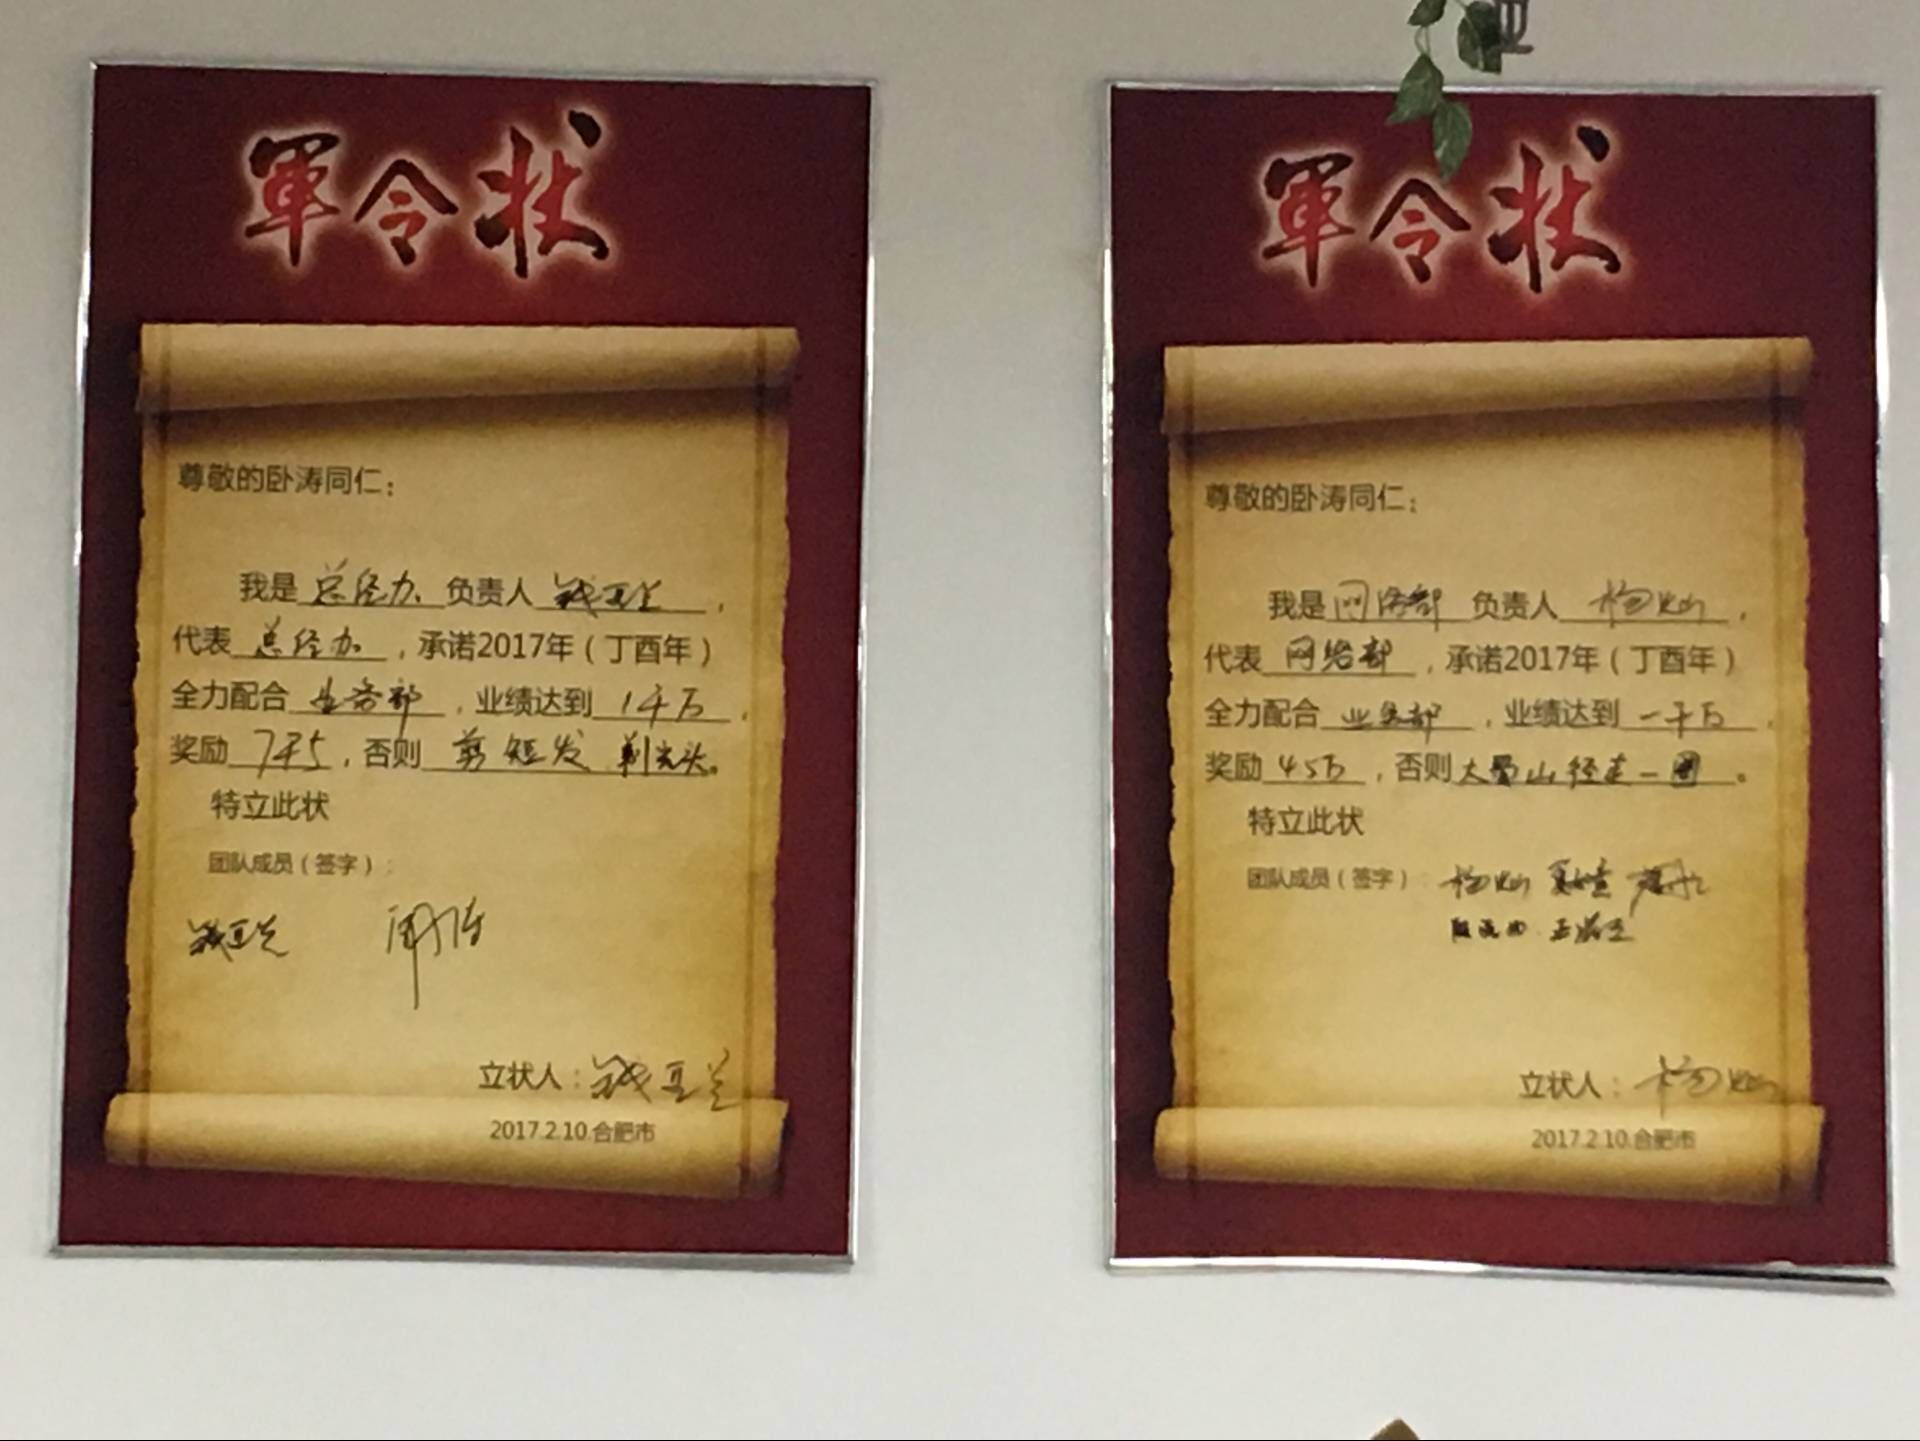 軍令状
尊敬的卧涛同仁：
我是总经办负责人钱亚兰，
代表总经办，承诺2017年（丁酉年）
全力配合业务部，业绩达到1千万，
奖励7千5，否则剪短发 剃光头。
特立此状
团队成员（签字）：
钱亚兰
立状人：钱亚兰
2017.2.10.合肥市
軍令状
尊敬的卧涛同仁：
我是网络部负责人杨灿，
代表网络部，承诺2017年（丁酉年）
全力配合业务部，业绩达到一千万，
奖励45万，否则大蜀山径走一圈。
特立此状
团队成员（签字）：杨灿
立状人：杨灿
2017.2.10.合肥市